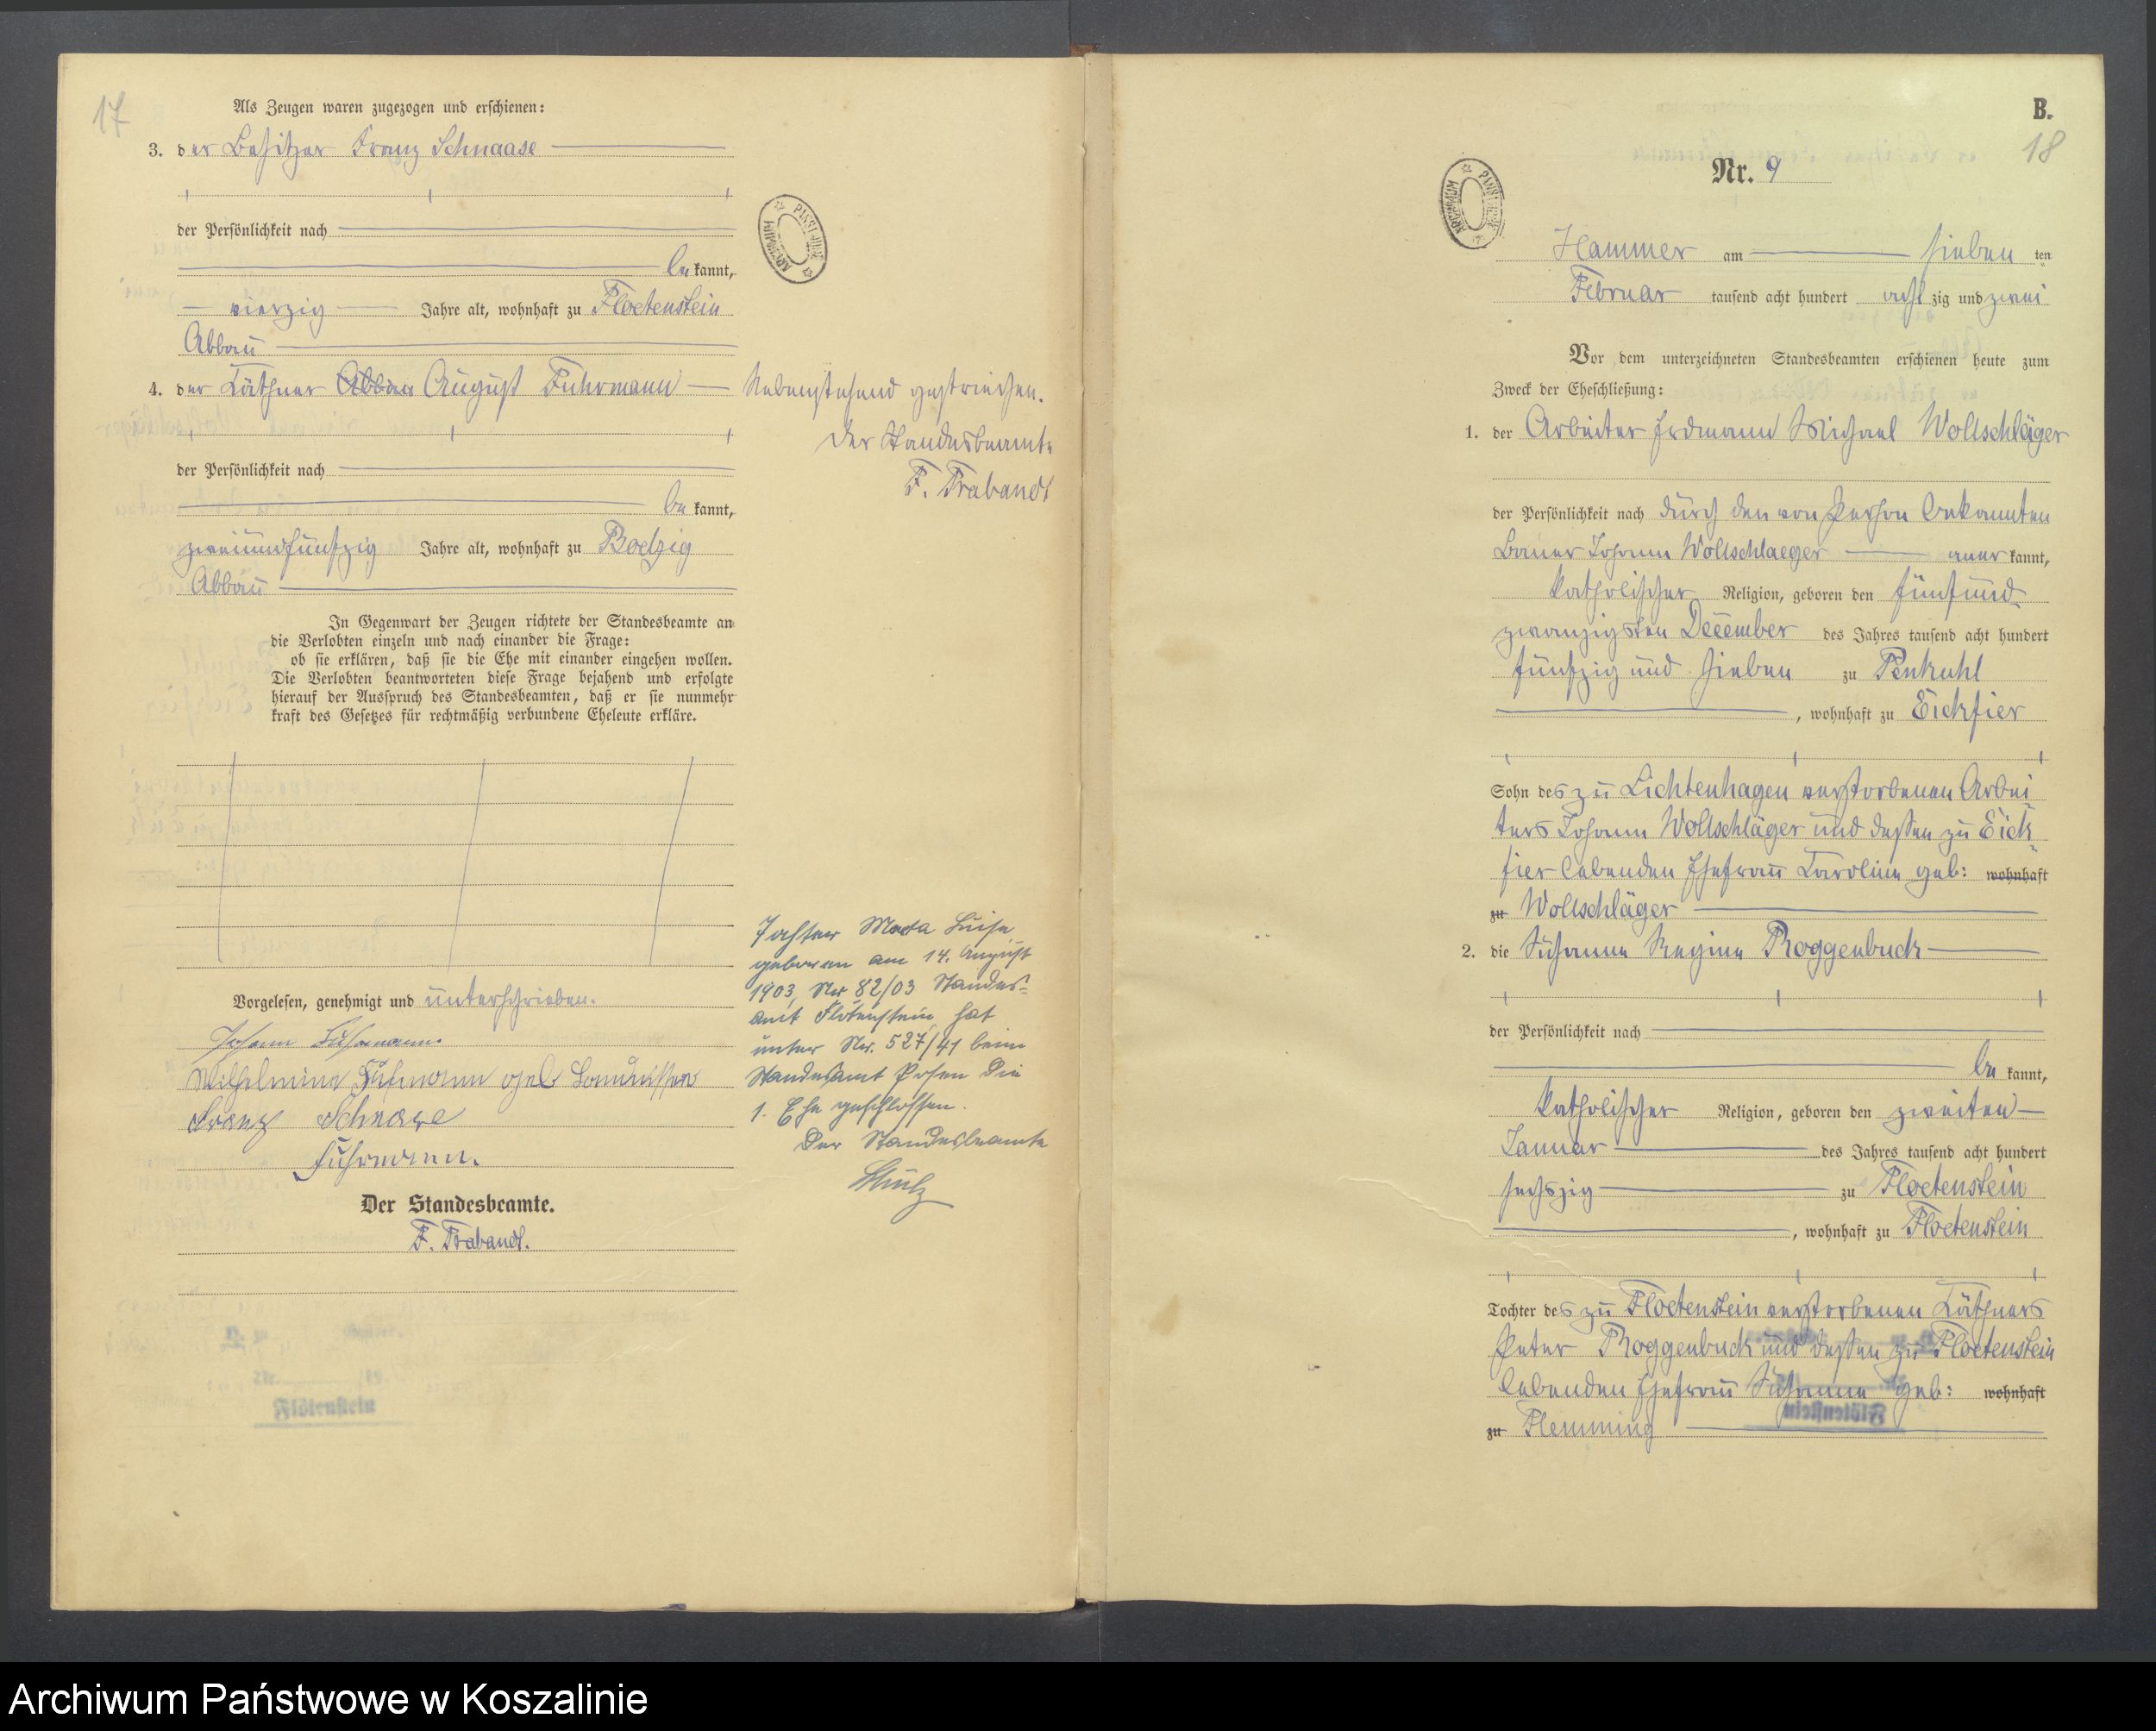 17
Als Zeugen waren zugezogen und erschienen:
3. der Besitzer Franz Schnaase
der Persönlichkeit nach
be kannt,
vierzig Jahre alt, wohnhaft zu Floetenstein
Abbau
4. der Käthner Abbau August Fuhrmann
der Persönlichkeit nach
be kannt,
zweiundfünfzig Jahre alt, wohnhaft zu Boelzig
Abbau
In Gegenwart der Zeugen richtete der Standesbeamte an
die Verlobten einzeln und nach einander die Frage:
ob sie erklären, daß sie die Ehe mit einander eingehen wollen.
Die Verlobten beantworteten diese Frage bejahend und erfolgte
hierauf der Ausspruch des Standesbeamten, daß er sie nunmehr
kraft des Gesetzes für rechtmäßig verbundene Eheleute erkläre.
Vorgelesen, genehmigt und unterschrieben.
Johann Fuhrmann.
Wilhelmine Fuhrmann geb
Franz Schnase
Fuhrmann.
Der Standesbeamte.
F. Trabandt.
Flötenstein
ARCHIWUM PAŃSTWOWE
Nebenstehend gestrichen.
Der Standesbeamte
F. Trabandt
Tochter Luise
geboren am 14. August
1903, Nr 82/03 Standes-
amt Flötenstein hat
unter Nr. 527/41 beim
Standesamt Posen die
1. Ehe geschlossen.
Der Standesbeamte
B.
18
ARCHIWUM PAŃSTWOWE
Nr. 9
Hammer am sieben ten
Februar tausend acht hundert acht zig und zwei
Vor dem unterzeichneten Standesbeamten erschienen heute zum
Zweck der Eheschließung:
1. der Arbeiter Erdmann Michael Wollschläger
der Persönlichkeit nach durch den von Person bekannten
Bauer Johann Wollschlaeger aner kannt,
katholischer Religion, geboren den fünfund
zwanzigsten December des Jahres tausend acht hundert
fünfzig und sieben zu Penkuhl
, wohnhaft zu Eickfier
Sohn des zu Lichtenhagen verstorbenen Arbei
ters Johann Wollschläger und dessen zu Eick
fier lebenden Ehefrau Caroline geb: wohnhaft
zu Wollschläger
2. die Susanna Regina Roggenbuck
der Persönlichkeit nach
be kannt,
katholischer Religion, geboren den zweiten
Januar des Jahres tausend acht hundert
sechszig zu Floetenstein
, wohnhaft zu Floetenstein
Tochter des zu Floetenstein verstorbenen Käthners
Peter Roggenbuck und dessen zu Floetenstein
lebenden Ehefrau Susanna geb: wohnhaft
zu Flemming
Archiwum Państwowe w Koszalinie